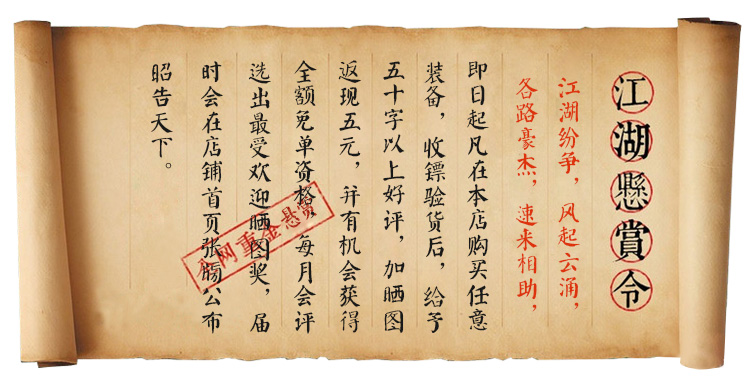 江湖懸賞令
江湖纷争，风起云涌，
各路豪杰，速来相助，
即日起凡在本店购买任意
装备，收镖验货后，给予
五十字以上好评，加晒图
返现五元，并有机会获得
全额免单资格，每月会评
选出最受欢迎晒图奖，届
时会在店铺首页张公布
昭告天下。
全网重金悬赏